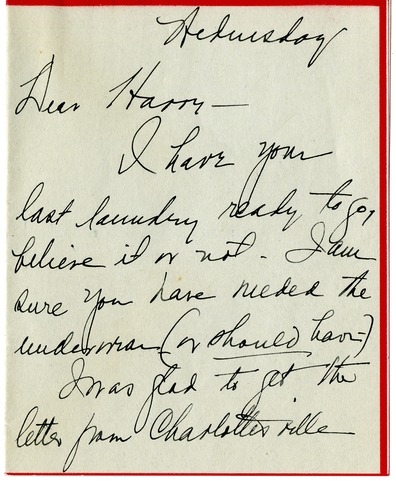 Wednesday
Dear Harry—
I have your
last laundry ready to go,
believe it or not. I am
sure you have needed the
underwear (or should have)
I was glad to get the
letter from Charlottesville